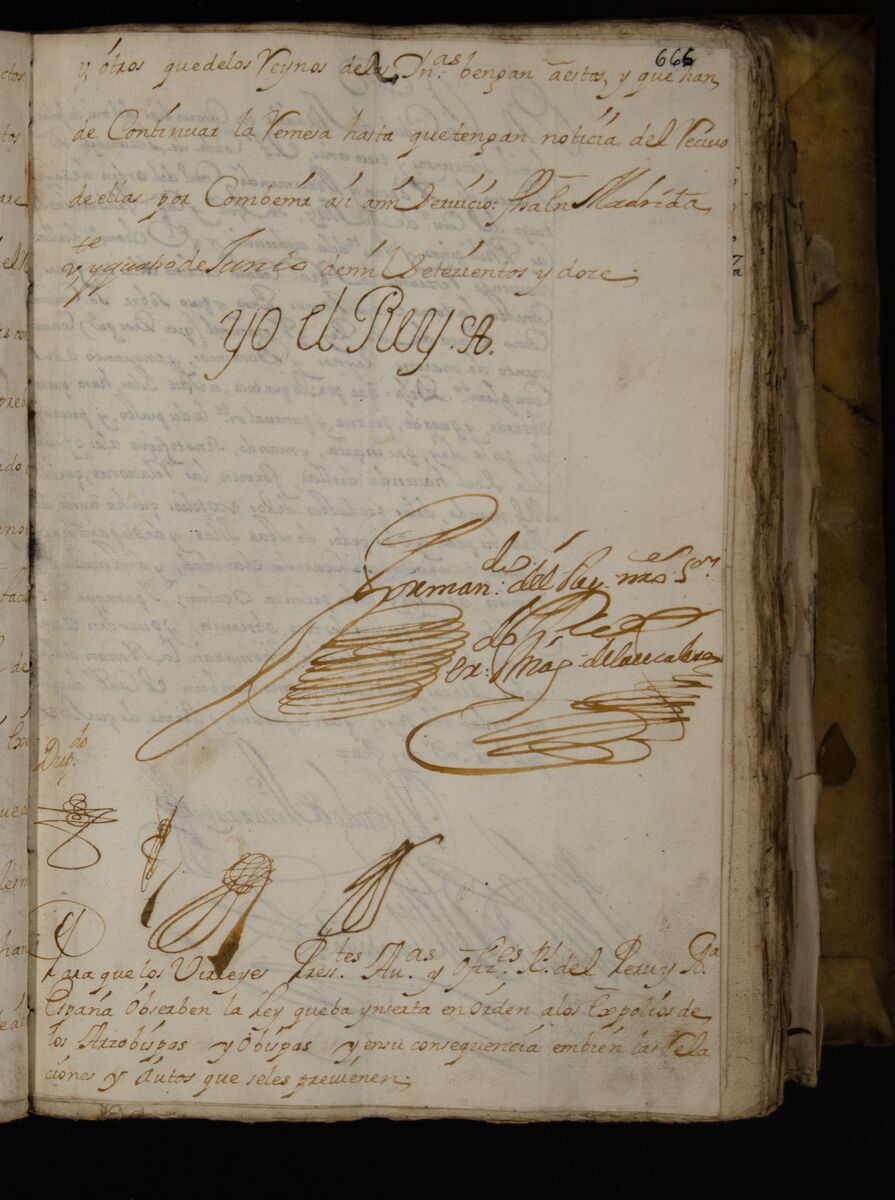 666
y otros quedelos Reynos delas Yn.as bengan aestos, y que han
de Continuar la Remesa hasta quetengan noticia del Recivo
de ellas por Combenir asi ami Servicio: fha en Madrid a
Vte yquatro de Junio demil Setezientos y doze.
yo el Rey
Por man.do del Rey nro S.or
Dup.do
Para que los Virreyes Pres.tes Au.as y ofiz.es R.s del Peru y N.a
España Obserben la Ley queba ynserta en Orden alos Expolios de
los Arzobispos y Obispos y ensu consequencia embien las Rela
ciones y Autos que seles previenen.